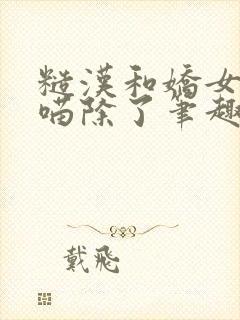 糙漢和嬌女
喵除了筆趣
戴飛